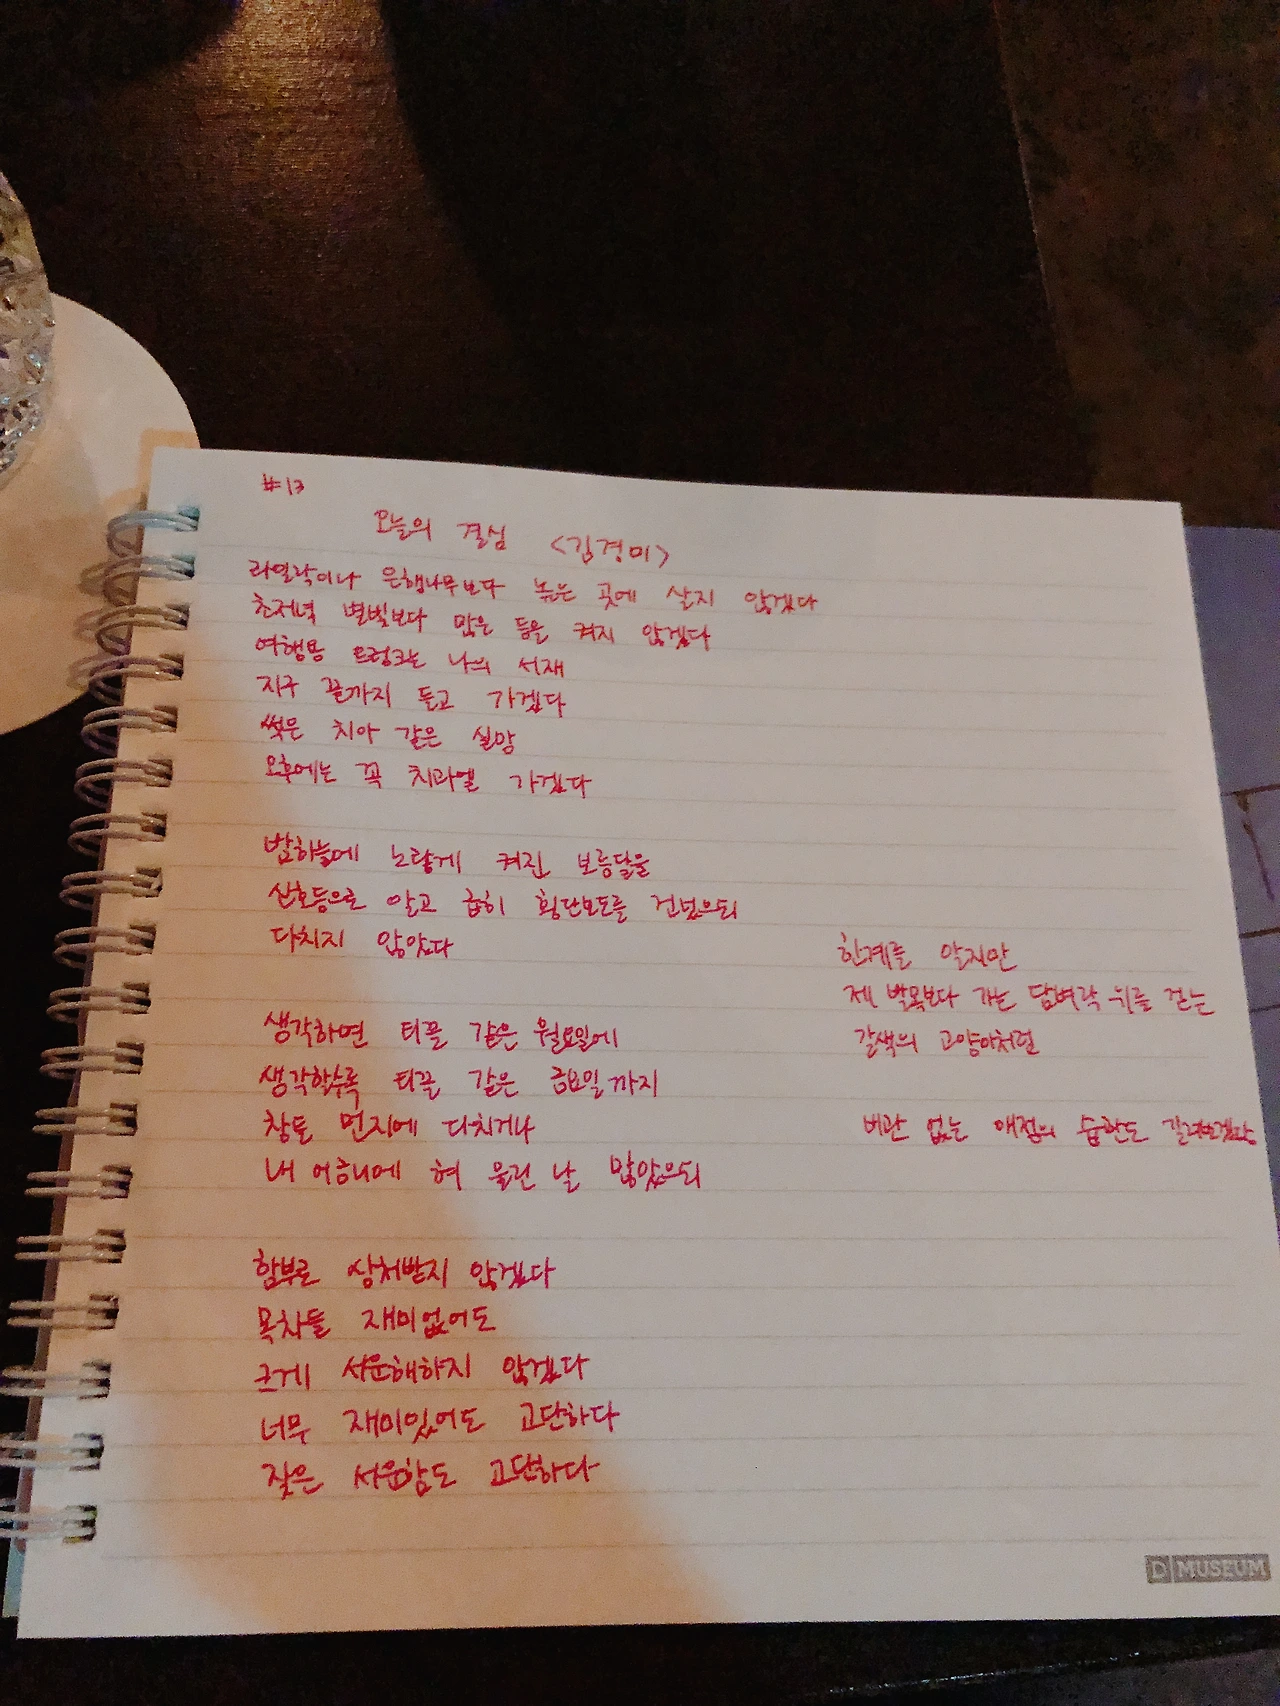 #13
오늘의 결심 <김경미>
라일락이나 은행나무보다 높은 곳에 살지 않겠다
초저녁 별빛보다 많은 등을 켜지 않겠다
여행용 트렁크는 나의 서재
지구 끝까지 들고 가겠다
썩은 치아 같은 실망
오후에는 꼭 치과엘 가겠다
밤하늘에 노랗게 켜진 보름달을
신호등으로 알고 급히 횡단보도를 건넜으되
다치지 않았다
생각하면 티끌 같은 월요일에
생각할수록 티끌 같은 금요일까지
창틀 먼지에 다치거나
내 어금니에 혀 물린 날 많았으되
함부로 상처받지 않겠다
목차들 재미없어도
크게 서운해하지 않겠다
너무 재미있어도 고단하다
잦은 서운함도 고단하다
한계를 알지만
제 발목보다 가는 담벼락 위를 걷는
갈색의 고양이처럼
비관 없는 애정의 습관도 길러보겠다
D MUSEUM